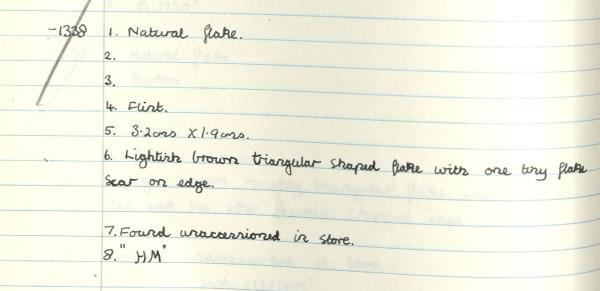 -1338 1. Natural flake.
2.
3.
4. Flint.
5. 3.2cms X 1.9cms.
6. Lightish brown triangular shaped flake with one tiny flake
scar on edge.
7. Found unaccessioned in store.
8. "HM"